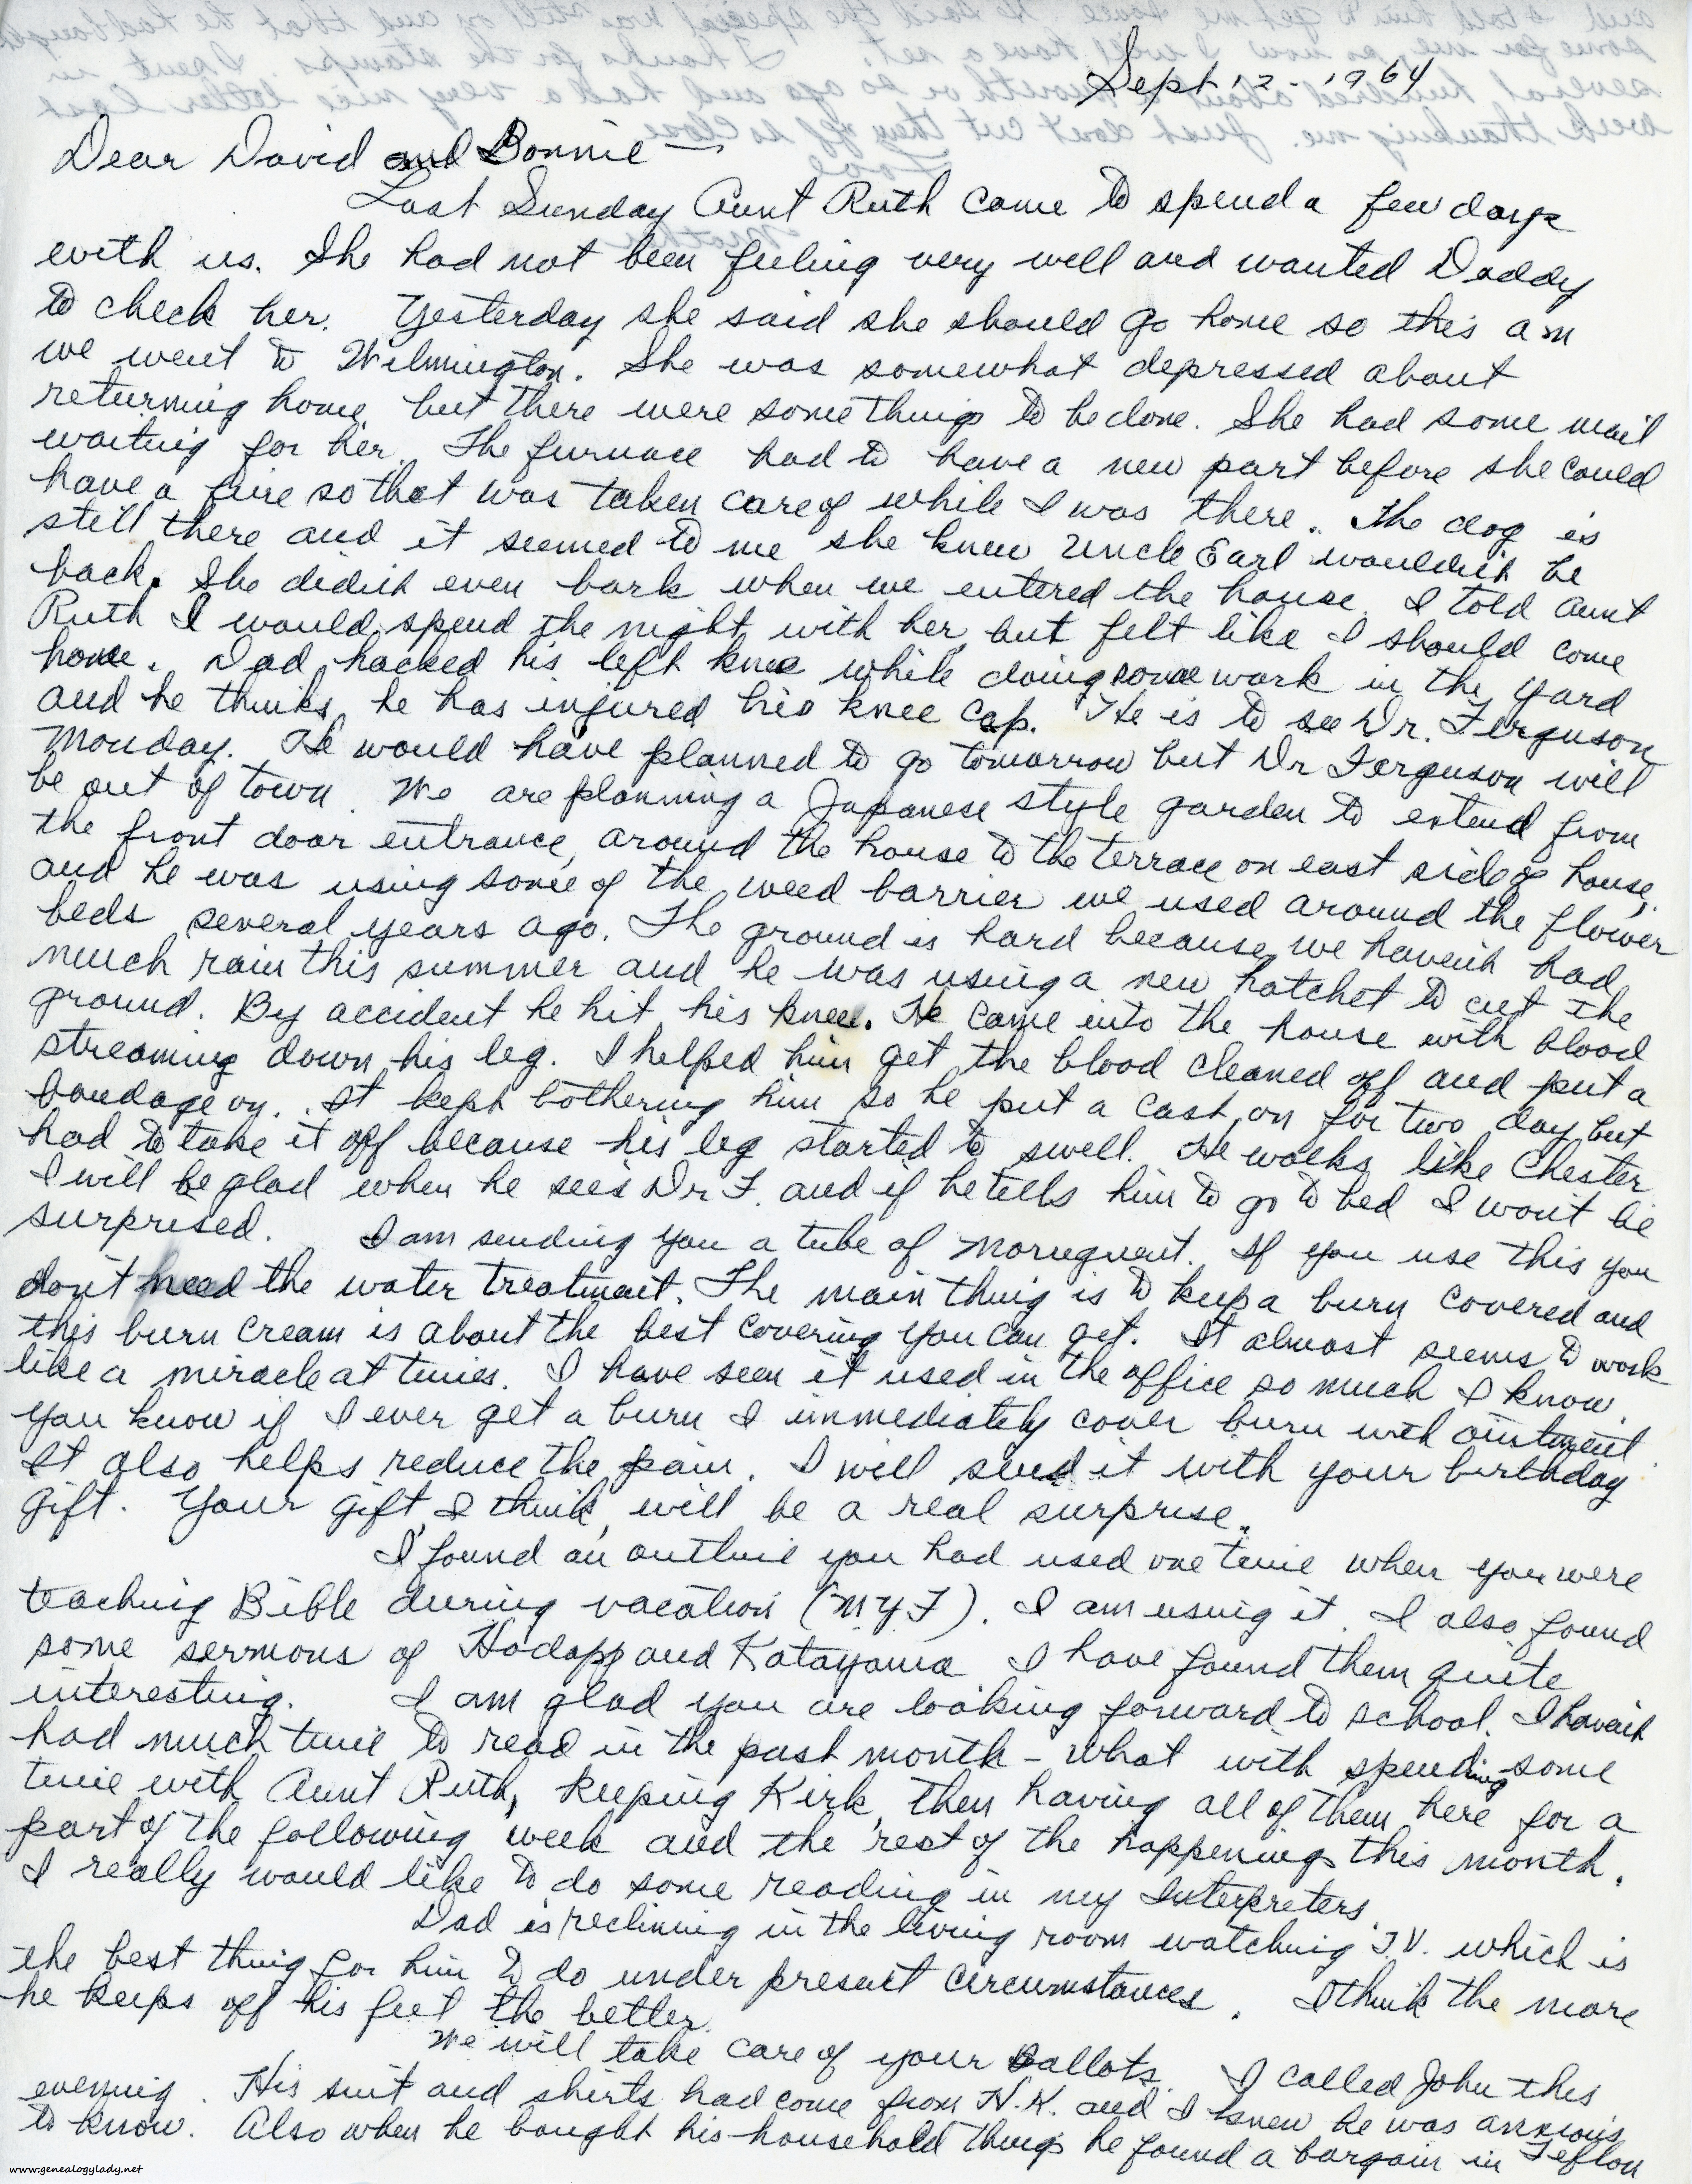 Sept 12 - 1964
Dear David and Bonnie —
Last Sunday Aunt Ruth came to spend a few days
with us. She had not been feeling very well and wanted Daddy
to check her. Yesterday she said she should go home so this am
we went to Wilmington. She was somewhat depressed about
returning home but there were some things to be done. She had some mail
waiting for her. The furnace had to have a new part before she could
have a fire so that was taken care of while I was there. The dog is
still there and it seemed to me she knew Uncle Earl wouldn't be
back. She didn't even bark when we entered the house. I told Aunt
Ruth I would spend the night with her but felt like I should come
home. Dad hacked his left knee while doing some work in the yard
and he thinks he has injured his knee cap. He is to see Dr. Ferguson
Monday. He would have planned to go tomorrow but Dr Ferguson will
be out of town. We are planning a Japanese style garden to extend from
the front door entrance, around the house to the terrace on east side of house,
and he was using some of the weed barrier we used around the flower
beds several years ago. The ground is hard because we haven't had
much rain this summer and he was using a new hatchet to cut the
ground. By accident he hit his knee. He came into the house with blood
streaming down his leg. I helped him get the blood cleaned off and put a
bandage on. It kept bothering him so he put a cast on for two day but
had to take it off because his leg started to swell. He walks like Chester
I will be glad when he sees Dr F. and if he tells him to go to bed I won't be
surprised. I am sending you a tube of Moruguent. If you use this you
don't need the water treatment. The main thing is to keep a burn covered and
this burn cream is about the best covering you can get. It almost seems to work
like a miracle at times. I have seen it used in the office so much I know.
You know if I ever get a burn I immediately cover burn with ointment
It also helps reduce the pain. I will send it with your birthday
gift. Your gift, I think, will be a real surprise.
I found an outline you had used one time when you were
teaching Bible during vacation (MYF). I am using it. I also found
some sermons of Hodapp and Katayama I have found them quite
interesting. I am glad you are looking forward to school. I haven't
had much time to read in the past month - what with spending some
time with Aunt Ruth, keeping Kirk, then having all of them here for a
part of the following week and the rest of the happenings this month.
I really would like to do some reading in my Interpreters.
Dad is reclining in the living room watching T.V. which is
the best thing for him to do under present circumstances. I think the more
he keeps off his feet the better.
We will take care of your Ballots. I called John this
evening. His suit and shirts had come from H.K. and I knew he was anxious
to know. Also when he bought his household things he found a bargain in Teflon
www.genealogylady.net